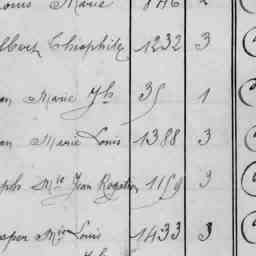 Louis Marie 846 2
lbert Théophile 1232 3
an Marie Jh 35 1
an Marie Louis 1388 3
ph Mie Jean 1159 3
sper Mie Louis 1433 3